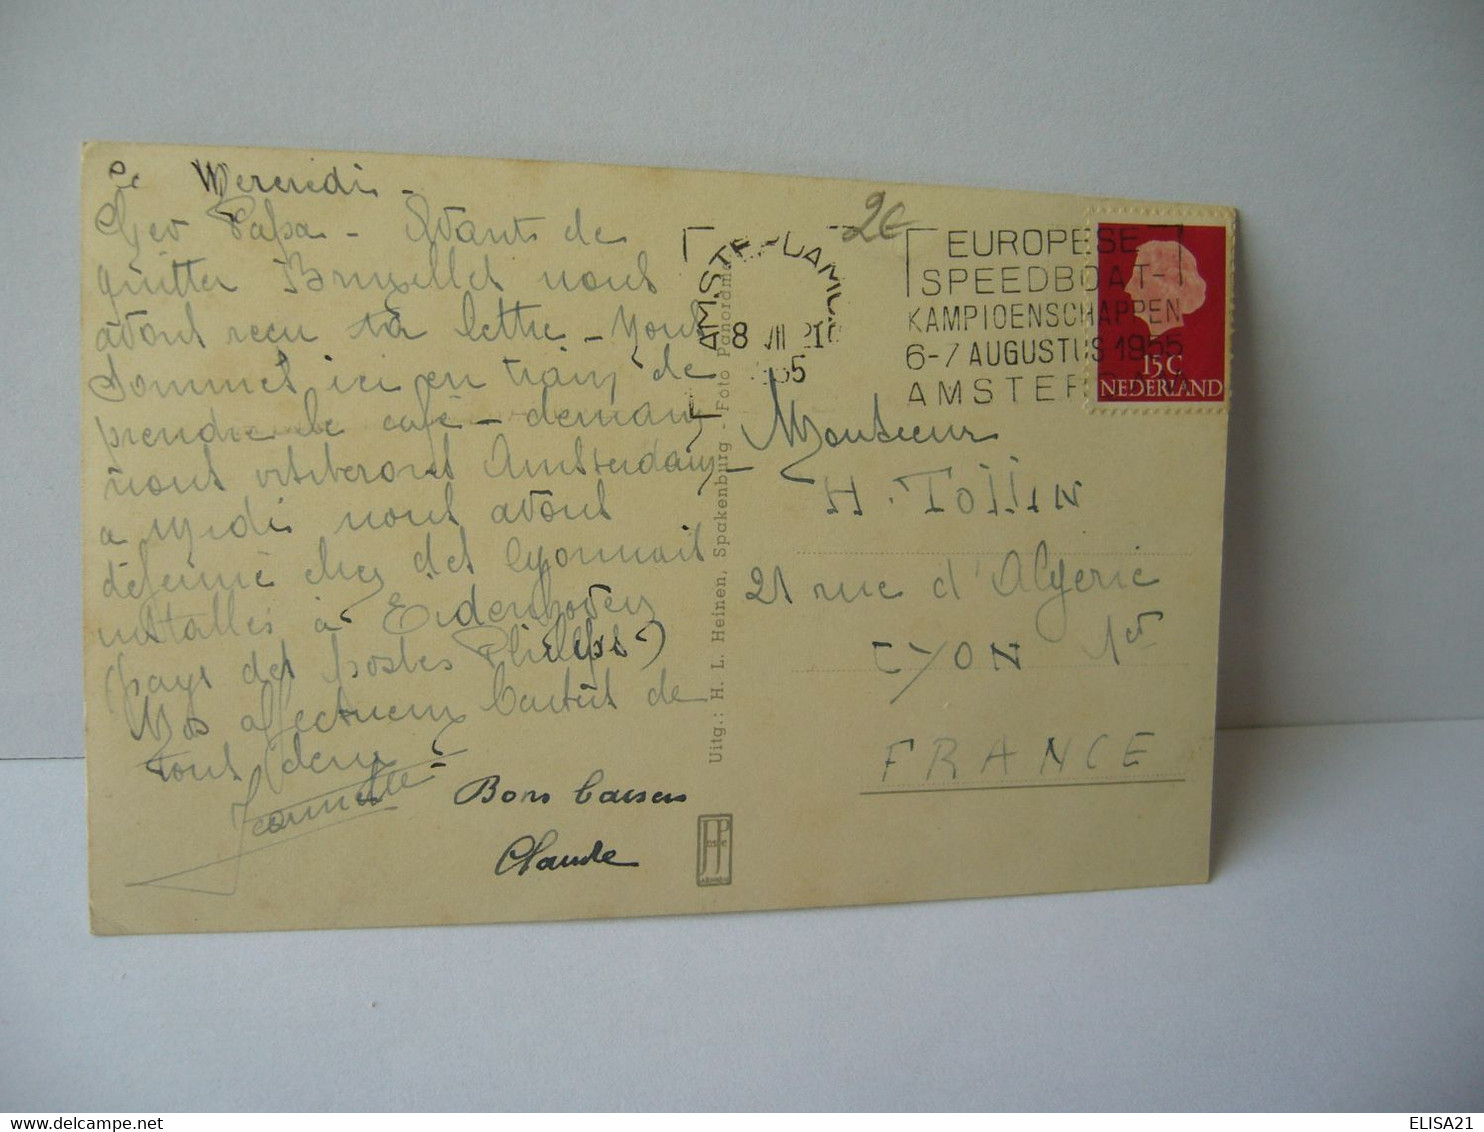 Le Mercredi -
Cher Papa - Avant de
quitter Bruxelles nous
avons reçu ta lettre - Nous
sommes ici en train de
prendre le café - demain
nous visiterons Amsterdam -
a midi nous avons
déjeuné chez des lyonnais
installés à Eidenhoven
(pays des postes Philips)
Mes affectueux baisers de
tous deux
Jeannette
Bons baisers
Claude
Uitg.: H. L. Heinen, Spakenburg - Foto Panorama
JP
2€
AMSTERDAM
8 VII 21
1955
EUROPESE
SPEEDBOAT-
KAMPIOENSCHAPPEN
6-7 AUGUSTUS 1955
AMSTERDAM
15C
NEDERLAND
Monsieur
H. Tollin
21 rue d'Algerie
LYON 1er
FRANCE
ELISA21